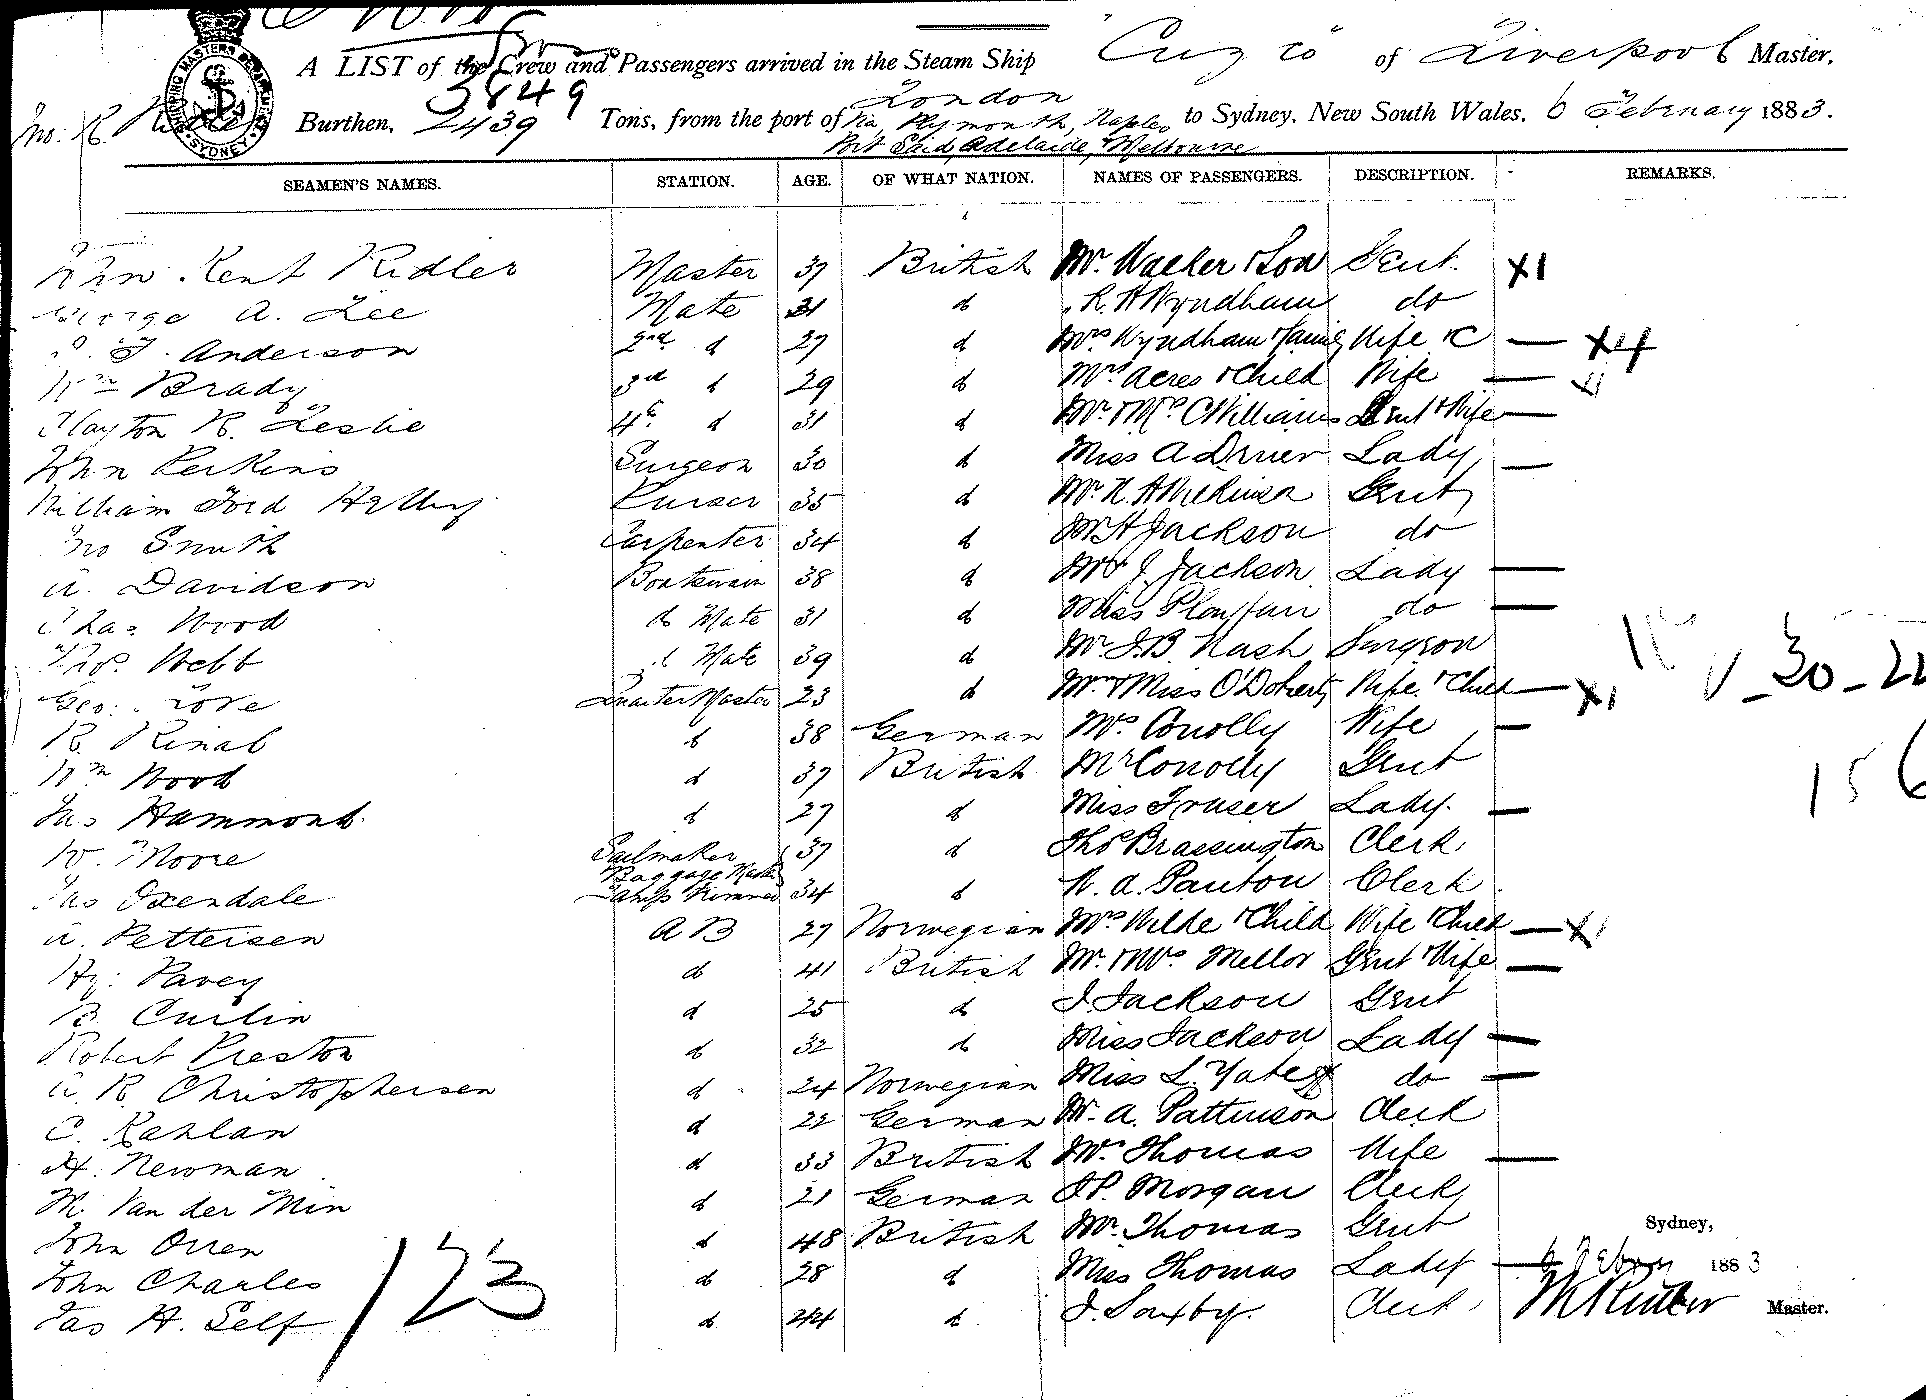 A LIST of the Crew and Passengers arrived in the Steam Ship "Cuzco" of Liverpool Master,
3849
Jno. K. Burthen, 2439 Tons, from the port of London to Sydney, New South Wales, 6 February 1883.
Via Plymouth, Naples
Port Said, Adelaide, Melbourne
SEAMEN'S NAMES. STATION. AGE. OF WHAT NATION. NAMES OF PASSENGERS. DESCRIPTION. REMARKS.
John Kent Ridler Master 37 British Mr. Walker & Son Gent. X1
George A. Lee Mate 31 d R. H Wyndham do
J. Anderson 2nd d 27 d Mrs Wyndham & family Wife &C — X4
Wm Brady 3rd d 29 d Mrs Acres & Child Wife — X1
Clayton R. Leslie 4th d 31 d Mr. & Mrs C Williams Gent & Wife —
John Perkins Surgeon 30 d Miss A Driver Lady —
William Ford Purser 35 d Mr. Gent
Jno Smith Carpenter 34 d Mr H Jackson do
A. Davidson Boatswain 38 d Mrs J. Jackson Lady —
Chas Wood d Mate 31 d Miss Playfair do —
Thos. Webb d Mate 39 d Mr. J. B. Nash Surgeon
Geo. Quarter Master 23 d Mrs & Miss O'Doherty Wife & Child — X1
V - 30 - 22
R. Rinal d 38 German Mrs Conolly Wife —
Wm Wood d 37 British Mr Conolly Gent
156
Jas Hammond d 27 d Miss Fraser Lady. —
W. Moore Sailmaker 37 d Thos Brassington Clerk
Jas Oxendale Baggage Master Lamp Trimmer 34 d A. Panton Clerk
A. Pettersen AB 27 Norwegian Mrs Wilde & Child Wife & Child — X1
Hy. Pavey d 41 British Mr. & Mrs. Mellor Gent & Wife —
B Curlin d 25 d J Jackson Gent
Robert Preston d 32 d Miss Jackson Lady —
A. R. Christophersen d 24 Norwegian Miss L. Yates do —
C. Kahlan d 22 German A. Pattinson Clerk
H. Newman d 33 British Mrs. Thomas Wife —
M. Van der Min d 21 German J P. Morgan Clerk
John Orren d 48 British Mr. Thomas Gent
Sydney,
John Charles d 28 d Miss Thomas Lady — 6 Febry 1883
Jas H. Self d 44 d J. Saxby. Clerk Master.
123